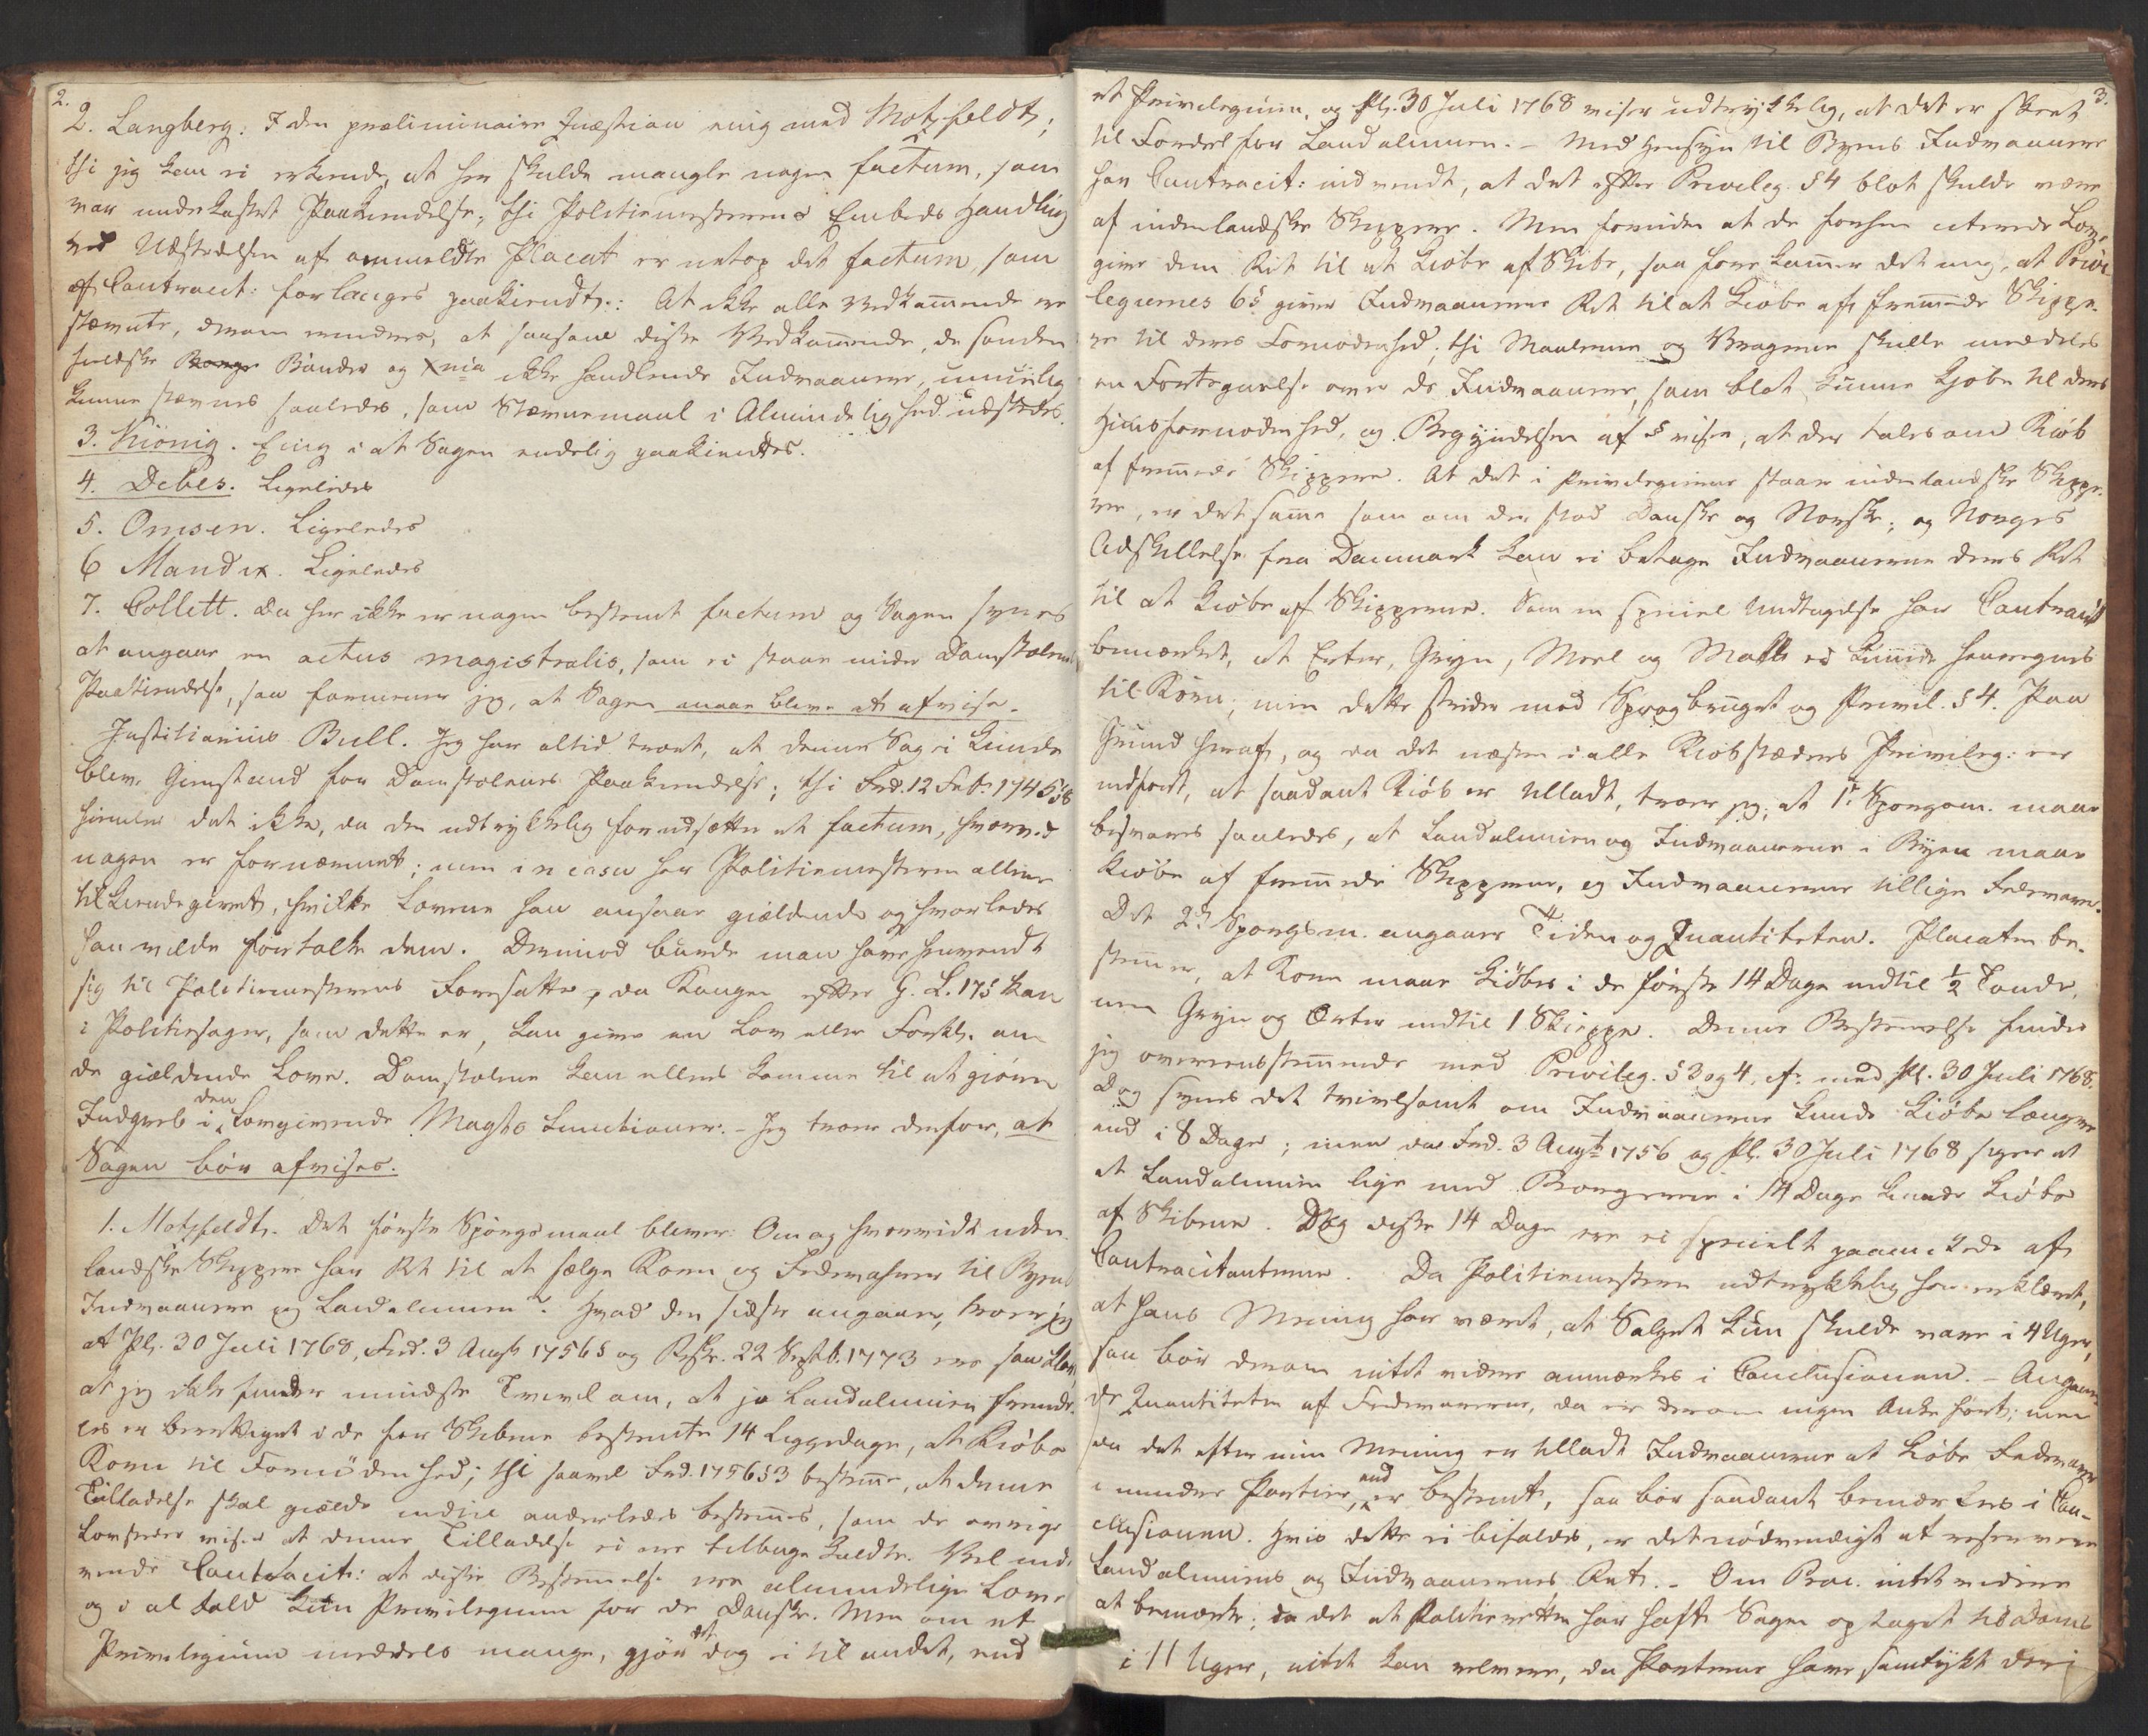 2.
2. Langberg. I den præliminaire Quæstion enig med Motzfeldt;
thi jeg kan ei erkiende, at her skulde mangle nogen factum, som
var underkastet Paakiendelse; thi Politiemesterens Embeds Handling
ved Udstædelsen af anmeldte Placat er netop det factum, som
af Contracit: forlanges paakiendt.: At ikke alle Vedkommende ere
stævnte, derom erindres, at saasom disse Vedkommende, de sønden-
fieldske Bønder og Xnia ikke handlende Indvaanere, umuelig
kunne stævnes saaledes, som Stævnemaal i Almindelighed udstedes.
3. Kiønig. Enig i at Sagen endelig paakiendtes.
4. Debes. Ligeledes
5. Omsen. Ligeledes
6 Mandix. Ligeledes
7. Collett. Da her ikke er nogen bestemt factum og Sagen synes
at angaae en actus magistralis, som ei staar under Domstolenes
Paakiendelse, saa formener jeg, at Sagen maae blive at afvise.
Justitiarius Bull. Jeg har altid troet, at denne Sag ei kunde
blive Gienstand for Domstolenes Paakiendelse; thi Frd. 12 Febr 1745 §8
hiemler det ikke, da den udtrykkelig forudsætter et factum, hvorved
nogen er fornærmet; men in casu har Politiemesteren allene
tilkiendegivet, hvilke Lovene han ansaae gieldende og hvorledes
han vilde fortolke dem. Derimod burde man have henvendt
sig til Politiemesterens Foresatte, da Kongen efter G. L. 175 kan
i Politiesager, som dette er, kan give en Lov eller Forkl. an-
de gieldende Love. Domstolene kan ellers komme til at giøre
Indgreb i den Lovgivende Magts Functioner. - Jeg troer derfor, at
Sagen bør afvises.
1. Motzfeldt. Det første Spørgsmaal bliver: Om og hvorvidt uden-
landske Skippere har Ret til at sælge Korn og Fedevahrer til Byens
Indvaanere og Landalmuen? Hvad den sidste angaaer, troer jeg
at Pl. 30 Juli 1768, Frd. 3 Augst 1756 § og Reskr. 22 Septb. 1773 ere saa klare,
at jeg ikke finder mindste Tvivl om, at jo Landalmuen fremde-
les er berettiget i de for Skibene bestemte 14 Liggedage, at kiøbe
Korn til Fornødenhed; thi saavel Frd. 1756 §3 bestemmer, at denne
Tilladelse skal gielde indtil anderledes bestemmes, som de øvrige
Lovsteder viser at denne Tilladelse ei ere tilbage kaldte. Vel ind-
vende Contracit: at disse Bestemmelse ere almindelige Love
og i al Fald kun Privilegium for de Danske. Men om et
Privilegium meddeles mange, gjør det dog ei til andet, end
3.
et Privilegium, og Pl. 30 Juli 1768 viser udtrykkelig, at det er skeet
til Fordel for Landalmuen. - Med Hensyn til Byens Indvaanere
har Contracit: indvendt, at det efter Privileg. §4 blot skulde være
af indenlandske Skippere. Men foruden at de forhen citerede Love
give dem Ret til at kiøbe af Skibe, saa forekommer det mig, at Privi-
legiernes 6§ giver Indvaanerne Ret til at kiøbe af fremmede Skippe-
re til deres Fornødenhed; thi Maalerne og Vragerne skulle meddeles
en Fortegnelse over de Indvaanere, som blot kunne kjøbe til deres
Huusfornødenhed, og Begyndelsen af § viser, at der tales om Kiøb
af fremmede Skippere. At det i Privilegierne staar indenlandske Skippe-
re, er det samme som om der stod Danske og Norske; og Norges
Adskillelse fra Danmark kan ei betage Indvaanerne deres Ret
til at kiøbe af Skipperne. Som en speciel Undtagelse har Contracit
bemærket, at Erter, Gryn, Meel og Malt ei kunde henregnes
til Korn; men dette strider mod Sprogbruget og Privil. §4. Paa
Grund heraf, og da det næsten i alle Kiøbstæders Privileg: er
indført, at saadant Kiøb er tilladt, troer jeg, at 1te Spørgsm. maae
besvares saaledes, at Landalmuen og Indvaanerne i Byen maae
kiøbe af fremmede Skippere, og Indvaanerne tillige Fedevare.
Det 2d Spørgsm. angaaer Tiden og Quantiteten. Placaten be-
stemmer, at Korn maae kiøbes i de første 14 Dage indtil ½ Tønde,
men Gryn og Erter indtil 1 Skieppe. Denne Bestemmelse findes
jeg overensstemmende med Privileg. §3 og 4, cfr. med Pl. 30 Juli 1768.
Dog synes det tvivlsomt om Indvaanerne kunde kiøbe længere
end i 8 Dage; men da Frd. 3 Augst 1756 og Pl. 30 Juli 1768 siger at
at Landalmuen lige med Borgerne i 14 Dage kunde kiøbe
af Skibene. Dog disse 14 Dage ere ei specielt paaankede af
Contracitanterne. Da Politiemesteren udtrykkelig har erklæret,
at hans Mening har været, at Salget kun skulde vare i 4 Uger,
saa bør derom intet videre anmærkes i Conclusionen. - Angaaen-
de Quantiteten af Fedevarerne, da er derom ingen Anke ført; men
da det efter min Mening er tilladt Indvaanerne at kiøbe Fedevarer
i mindre Partier, end er bestemt, saa bør saadant bemærkes i Con-
clusionen. Hvis dette ei bifaldes, er det nødvendigt at reservere
Landalmuens og Indvaanernes Ret. - Om Proc. intet videre
at bemærke; da det at Politieretten har haft Sagen optaget til Doms
i 11 Uger, intet kan relevere, da Parterne have samtykt deri